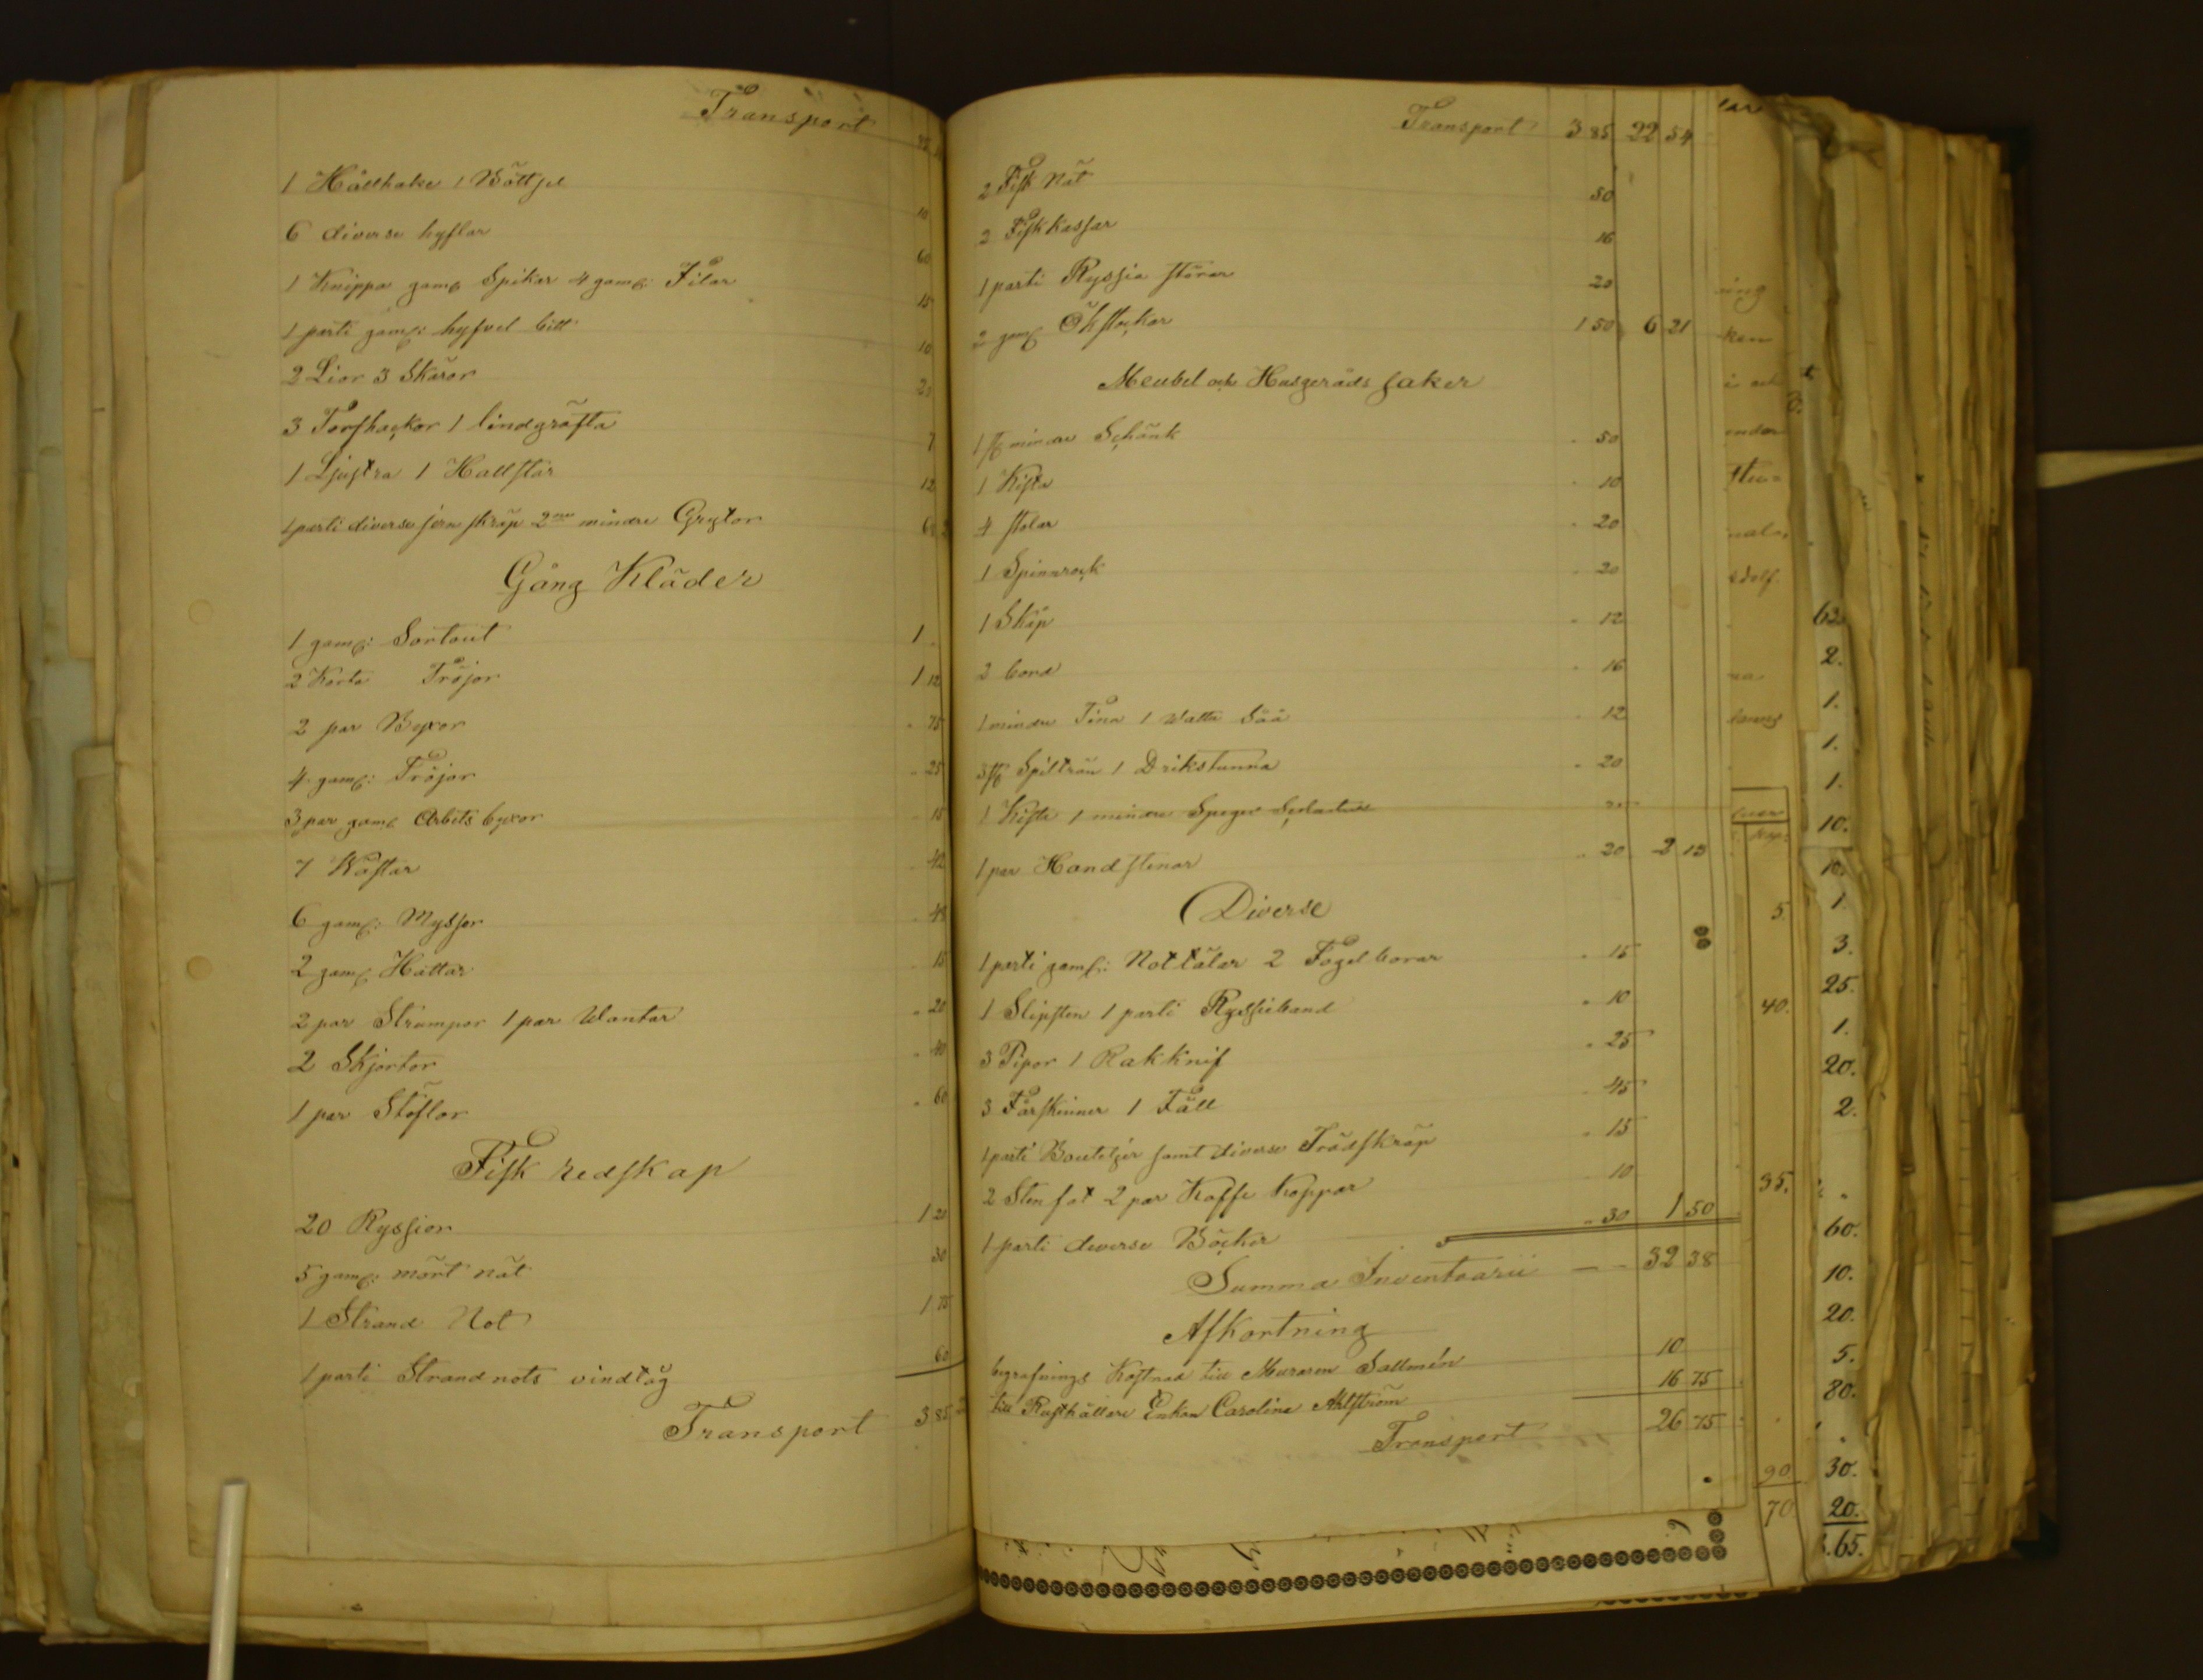 Transport
1 Hållhake 1 Böttjel 10
6 diverse hyflar 60
1 Knippa gaml Spikar 4 gaml: Filar 15
1 parti gaml: hyfvel bitt 10
2 Lior 3 Skäror 20
3 Torfhackor 1 lindgräfta 7
1 Ljustra 1 Hallstär 12
1 parti diverse jern skräp 2ne mindre Grytor 60
Gång Kläder
1 gaml: Sortout 1
2 Korta Tröjor 1 12
2 par Byxor 75
4 gaml: Tröjor 25
3 par gaml Arbets byxor 15
7 Wästar 42
6 gaml: Myssor 48
2 gaml Hattar 15
2 par Strumpor 1 par Wantar 20
2 Skjortor 40
1 par Stöflor 60
Fisk redskap
20 Ryssior 1 20
5 gaml: mört nät 30
1 Strand Not 1 75
1 parti Strandnots vindtåg 60
Transport 3 85
Transport 3 85 22 54
2 Fisk Nät 50
2 Fiskkassar 16
1 parti Ryssia störar 20
2 gaml Ökstockar 1 50 6 21
Meubel och Husgeråds saker
1 st mindre Schänk 50
1 Kista 10
4 stolar 20
1 Spinnrock 20
1 Skåp 12
2 bord 16
1 mindre Tina 1 Watta Såå 12
3 st Spilträn 1 Drikstunna 20
1 Kista 1 mindre
1 par Handstenar 20 2 13
Diverse
1 parti gaml: Nottälar 2 Fogelborar 15
1 Slipsten 1 parti Ryssieband 10
3 Pipor 1 Rakknif 25
3 Fårskinner 1 Fäll 45
1 parti Bouteljer samt diverse Trädskräp 15
2 Stenfat 2 par Kaffe Koppar 10
1 parti diverse Böcker 30 1 50
Summa Inventarii 32 38
Afkortning
begrafnings Kostnad till Muraren Sallmén 10
till Rusthållare Enkan Carolina Ahlström 16 75
Transport 26 75